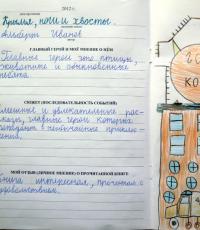 2012 г.
Крылья, ноги и хвосты.
Альберт Иванов
ГЛАВНЫЙ ГЕРОЙ И МОЁ МНЕНИЕ О НЁМ
Главные герои это птицы,
животные и обыкновенные
ребята.
СЮЖЕТ (ПОСЛЕДОВАТЕЛЬНОСТЬ СОБЫТИЙ)
Смешные и увлекательные рас-
сказы, главные герои которых
попадают в необычайные приклю-
чения.
МОЙ ОТЗЫВ (ЛИЧНОЕ МНЕНИЕ) О ПРОЧИТАННОЙ КНИГЕ
Книга интересная, прочитал с
удовольствием.
КО